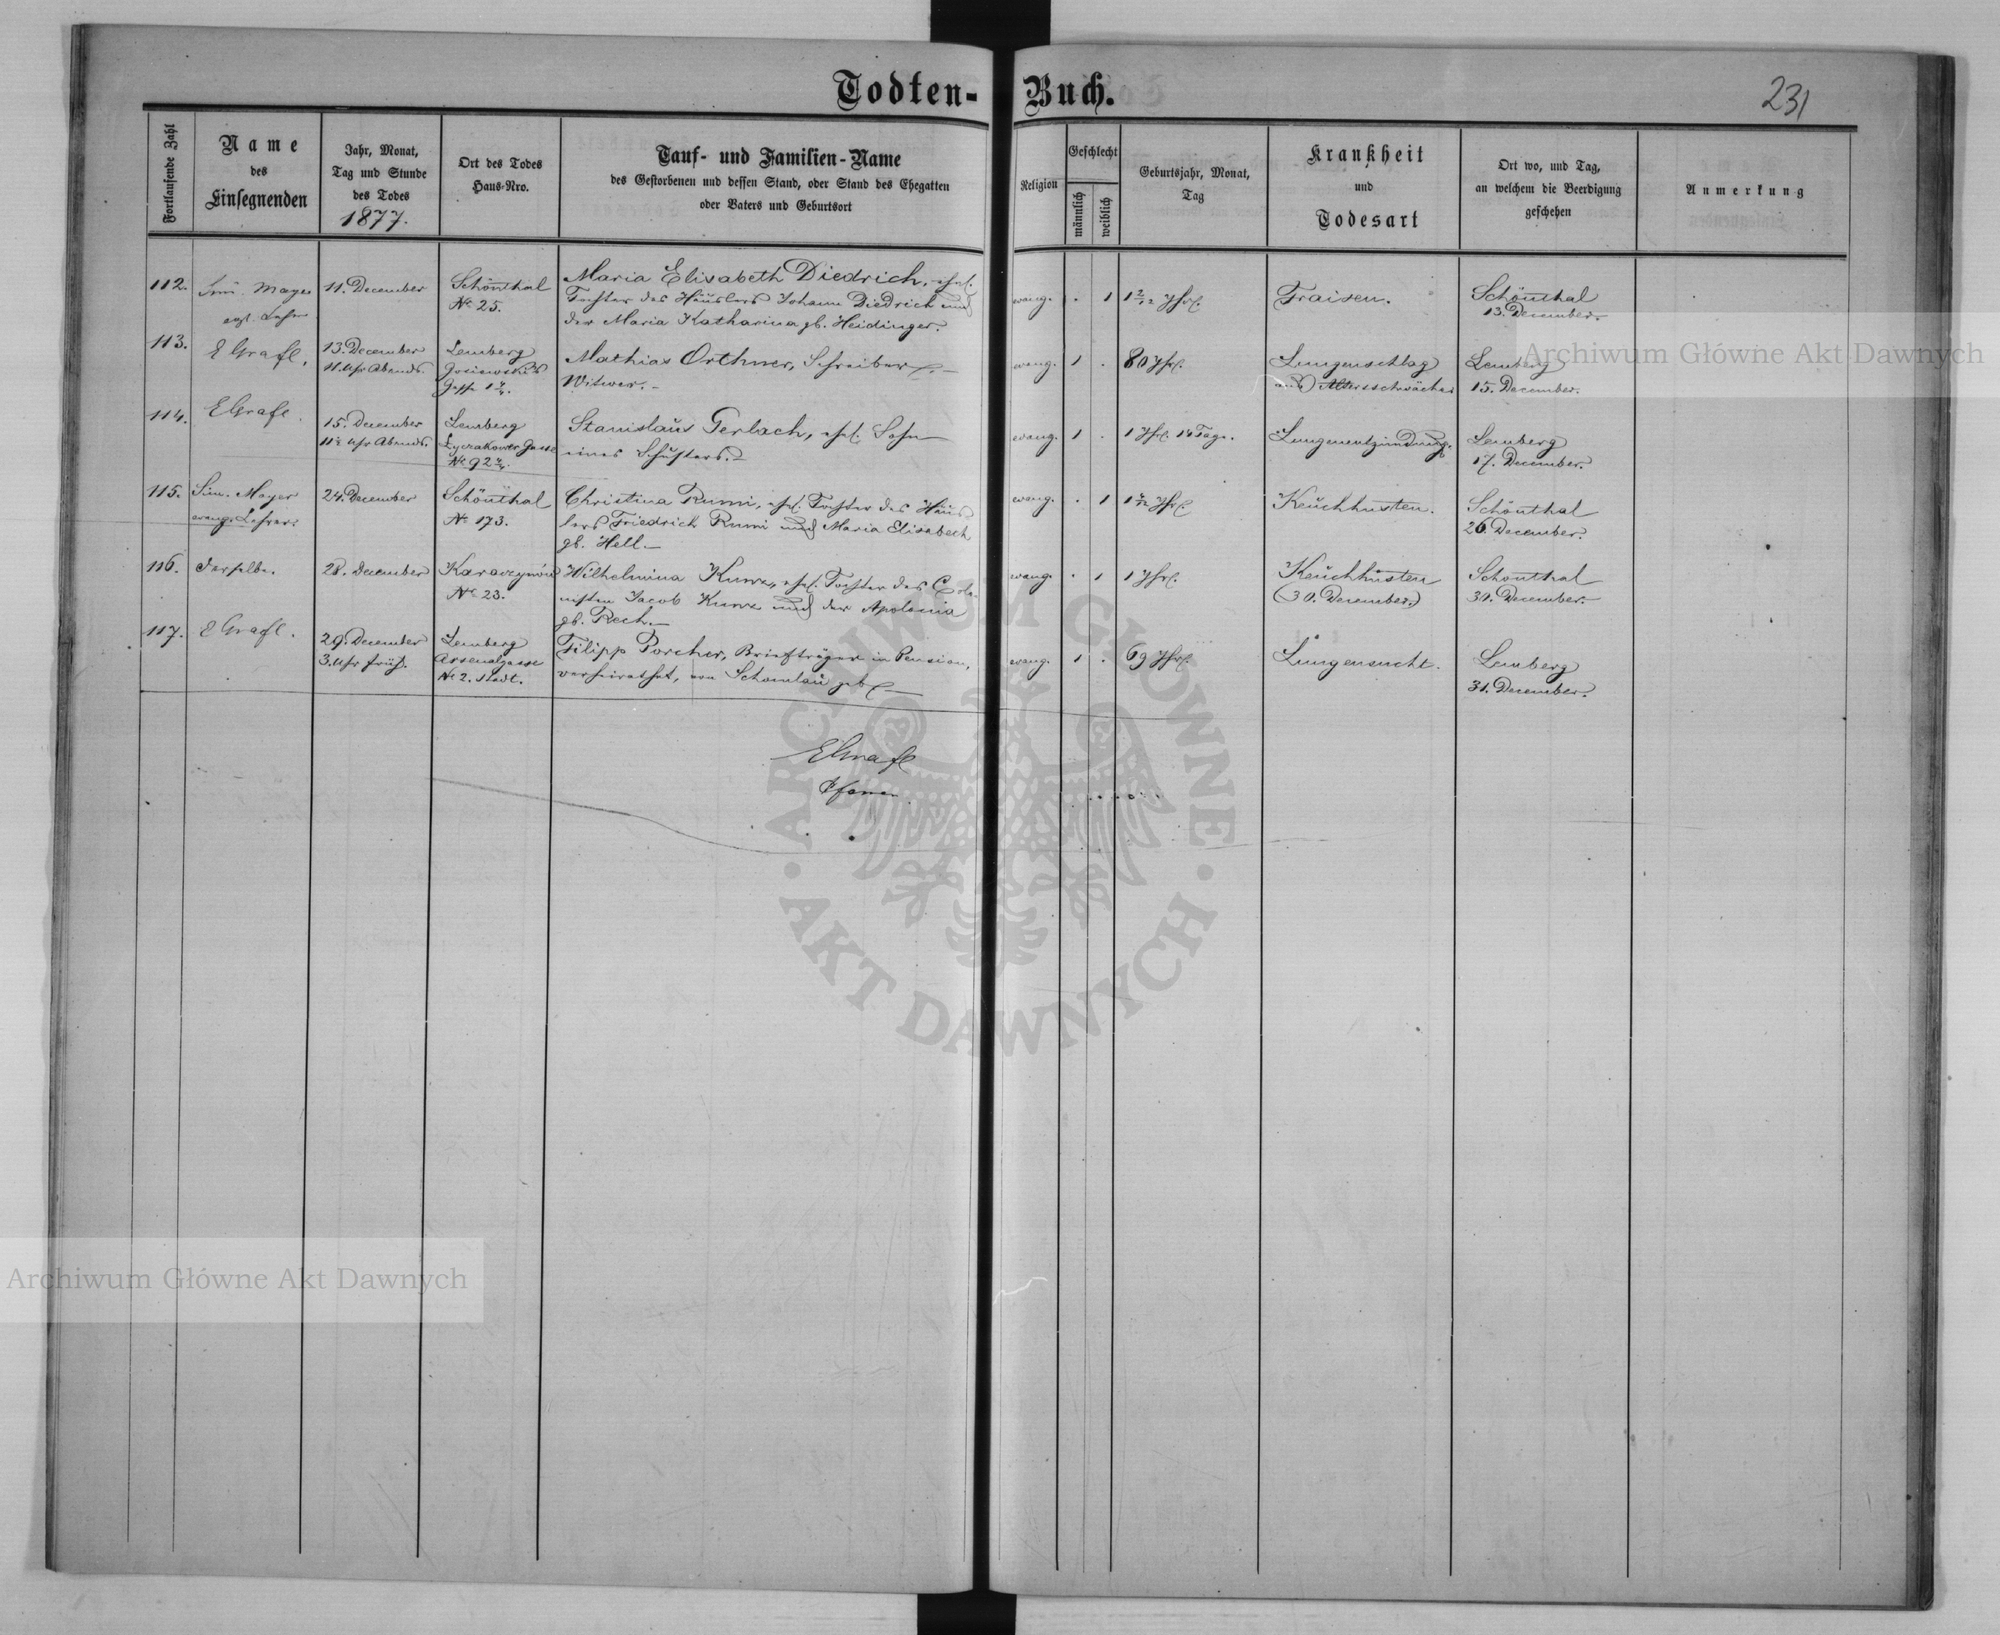 Todten-Buch.
231
Fortlaufende Zahl
Name
des
Einsegnenden
Jahr, Monat,
Tag und Stunde
des Todes
1877.
Ort des Todes
Haus-Nro.
Tauf- und Familien-Name
des Gestorbenen und dessen Stand, oder Stand des Ehegatten
oder Vaters und Geburtsort
Religion
Geschlecht
männlich
weiblich
Geburtsjahr, Monat,
Tag
Krankheit
und
Todesart
Ort wo, und Tag,
an welchem die Beerdigung
geschehen
Anmerkung
112.
Sim. Mayer
11. December
Schönthal
No 25.
Maria Elisabeth Diedrich, ehel.
Tochter des Häuslers Johann Diedrich und
der Maria Katharina gb. Heidinger.
evang. . 1
1 2/12 Jhr.
Fraisen.
Schönthal
13. December.
113.
EGrafl.
13. December
11 Uhr Abends.
Lemberg
Mathias Orthner, Schreiber
Witwer.
evang. 1 .
80 Jhr.
Lungenschlag
und Altersschwäche
Lemberg
15. December.
114.
EGrafl.
15. December
Uhr Abends.
Lemberg
Lyczakower Gasse
No 92
Stanislaus Gerlach, ehel. Sohn
eines Schusters.
evang. 1 .
1 Jhr. 14 Tage.
Lungenentzündung.
Lemberg
17. December.
115.
Sim. Mayer
evang. Lehrer
24. December
Schönthal
No 173.
Christina Rumi, ehel. Tochter des Häus-
lers Friedrich Rumi und Maria Elisabeth
gb. Hell.
evang. . 1
Keuchhusten.
Schönthal
26. December.
116.
derselbe.
28. December
No 23.
Wilhelmina Kunz, ehel. Tochter des Colo-
nisten Jacob Kunz und der Apolonia
gb. Rech.
evang. . 1
1 Jhr.
Keuchhusten
(30. December.)
Schönthal
30. December.
117.
EGrafl.
29. December
3. Uhr früh.
Lemberg
Arsenalgasse
No 2. Stadt.
Filipp Porcher, Briefträger in Pension,
verheirathet, von Schomlau geb.
evang. 1 .
69 Jhr.
Lungensucht.
Lemberg
31. December.
EGrafl
Pfarrer
ARCHIWUM GŁÓWNE AKT DAWNYCH
Archiwum Główne Akt Dawnych
Archiwum Główne Akt Dawnych